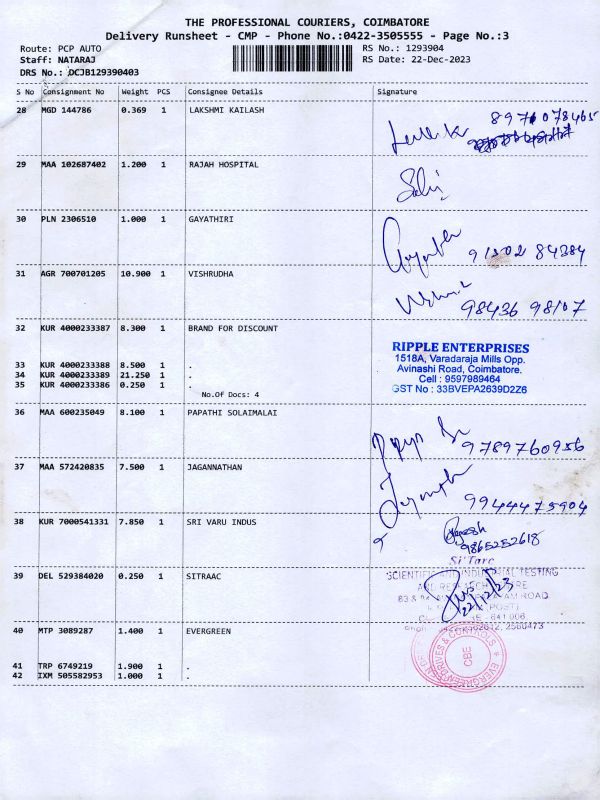 THE PROFESSIONAL COURIERS, COIMBATORE
Delivery Runsheet - CMP - Phone No.:0422-3505555 - Page No.:3
Route: PCP AUTO
RS No.: 1293904
Staff: NATARAJ
RS Date: 22-Dec-2023
DRS No.: DCJB129390403
S No Consignment No Weight PCS Consignee Details Signature
28 MGD 144786 0.369 1 LAKSHMI KAILASH
8971078465
29 MAA 102687402 1.200 1 RAJAH HOSPITAL
30 PLN 2306510 1.000 1 GAYATHIRI
91502 84384
31 AGR 700701205 10.900 1 VISHRUDHA
98436 98107
32 KUR 4000233387 8.300 1 BRAND FOR DISCOUNT
RIPPLE ENTERPRISES
1518A, Varadaraja Mills Opp.
Avinashi Road, Coimbatore.
Cell : 9597989464
GST No : 33BVEPA2639D2Z6
33 KUR 4000233388 8.500 1 .
34 KUR 4000233389 21.250 1 .
35 KUR 4000233386 0.250 1 .
No.Of Docs: 4
36 MAA 600235049 8.100 1 PAPATHI SOLAIMALAI
9789760956
37 MAA 572420835 7.500 1 JAGANNATHAN
9944475904
38 KUR 7000541331 7.850 1 SRI VARU INDUS
9865252618
39 DEL 529384020 0.250 1 SITRAAC
Si'Tarc
SCIENTIFIC AND INDUSTRIAL TESTING
AND RESEARCH CENTRE
22/12/23
40 MTP 3089287 1.400 1 EVERGREEN
EVERGREEN DRIVES & CONTROLS
CBE
41 TRP 6749219 1.900 1 .
42 IXM 505582953 1.000 1 .